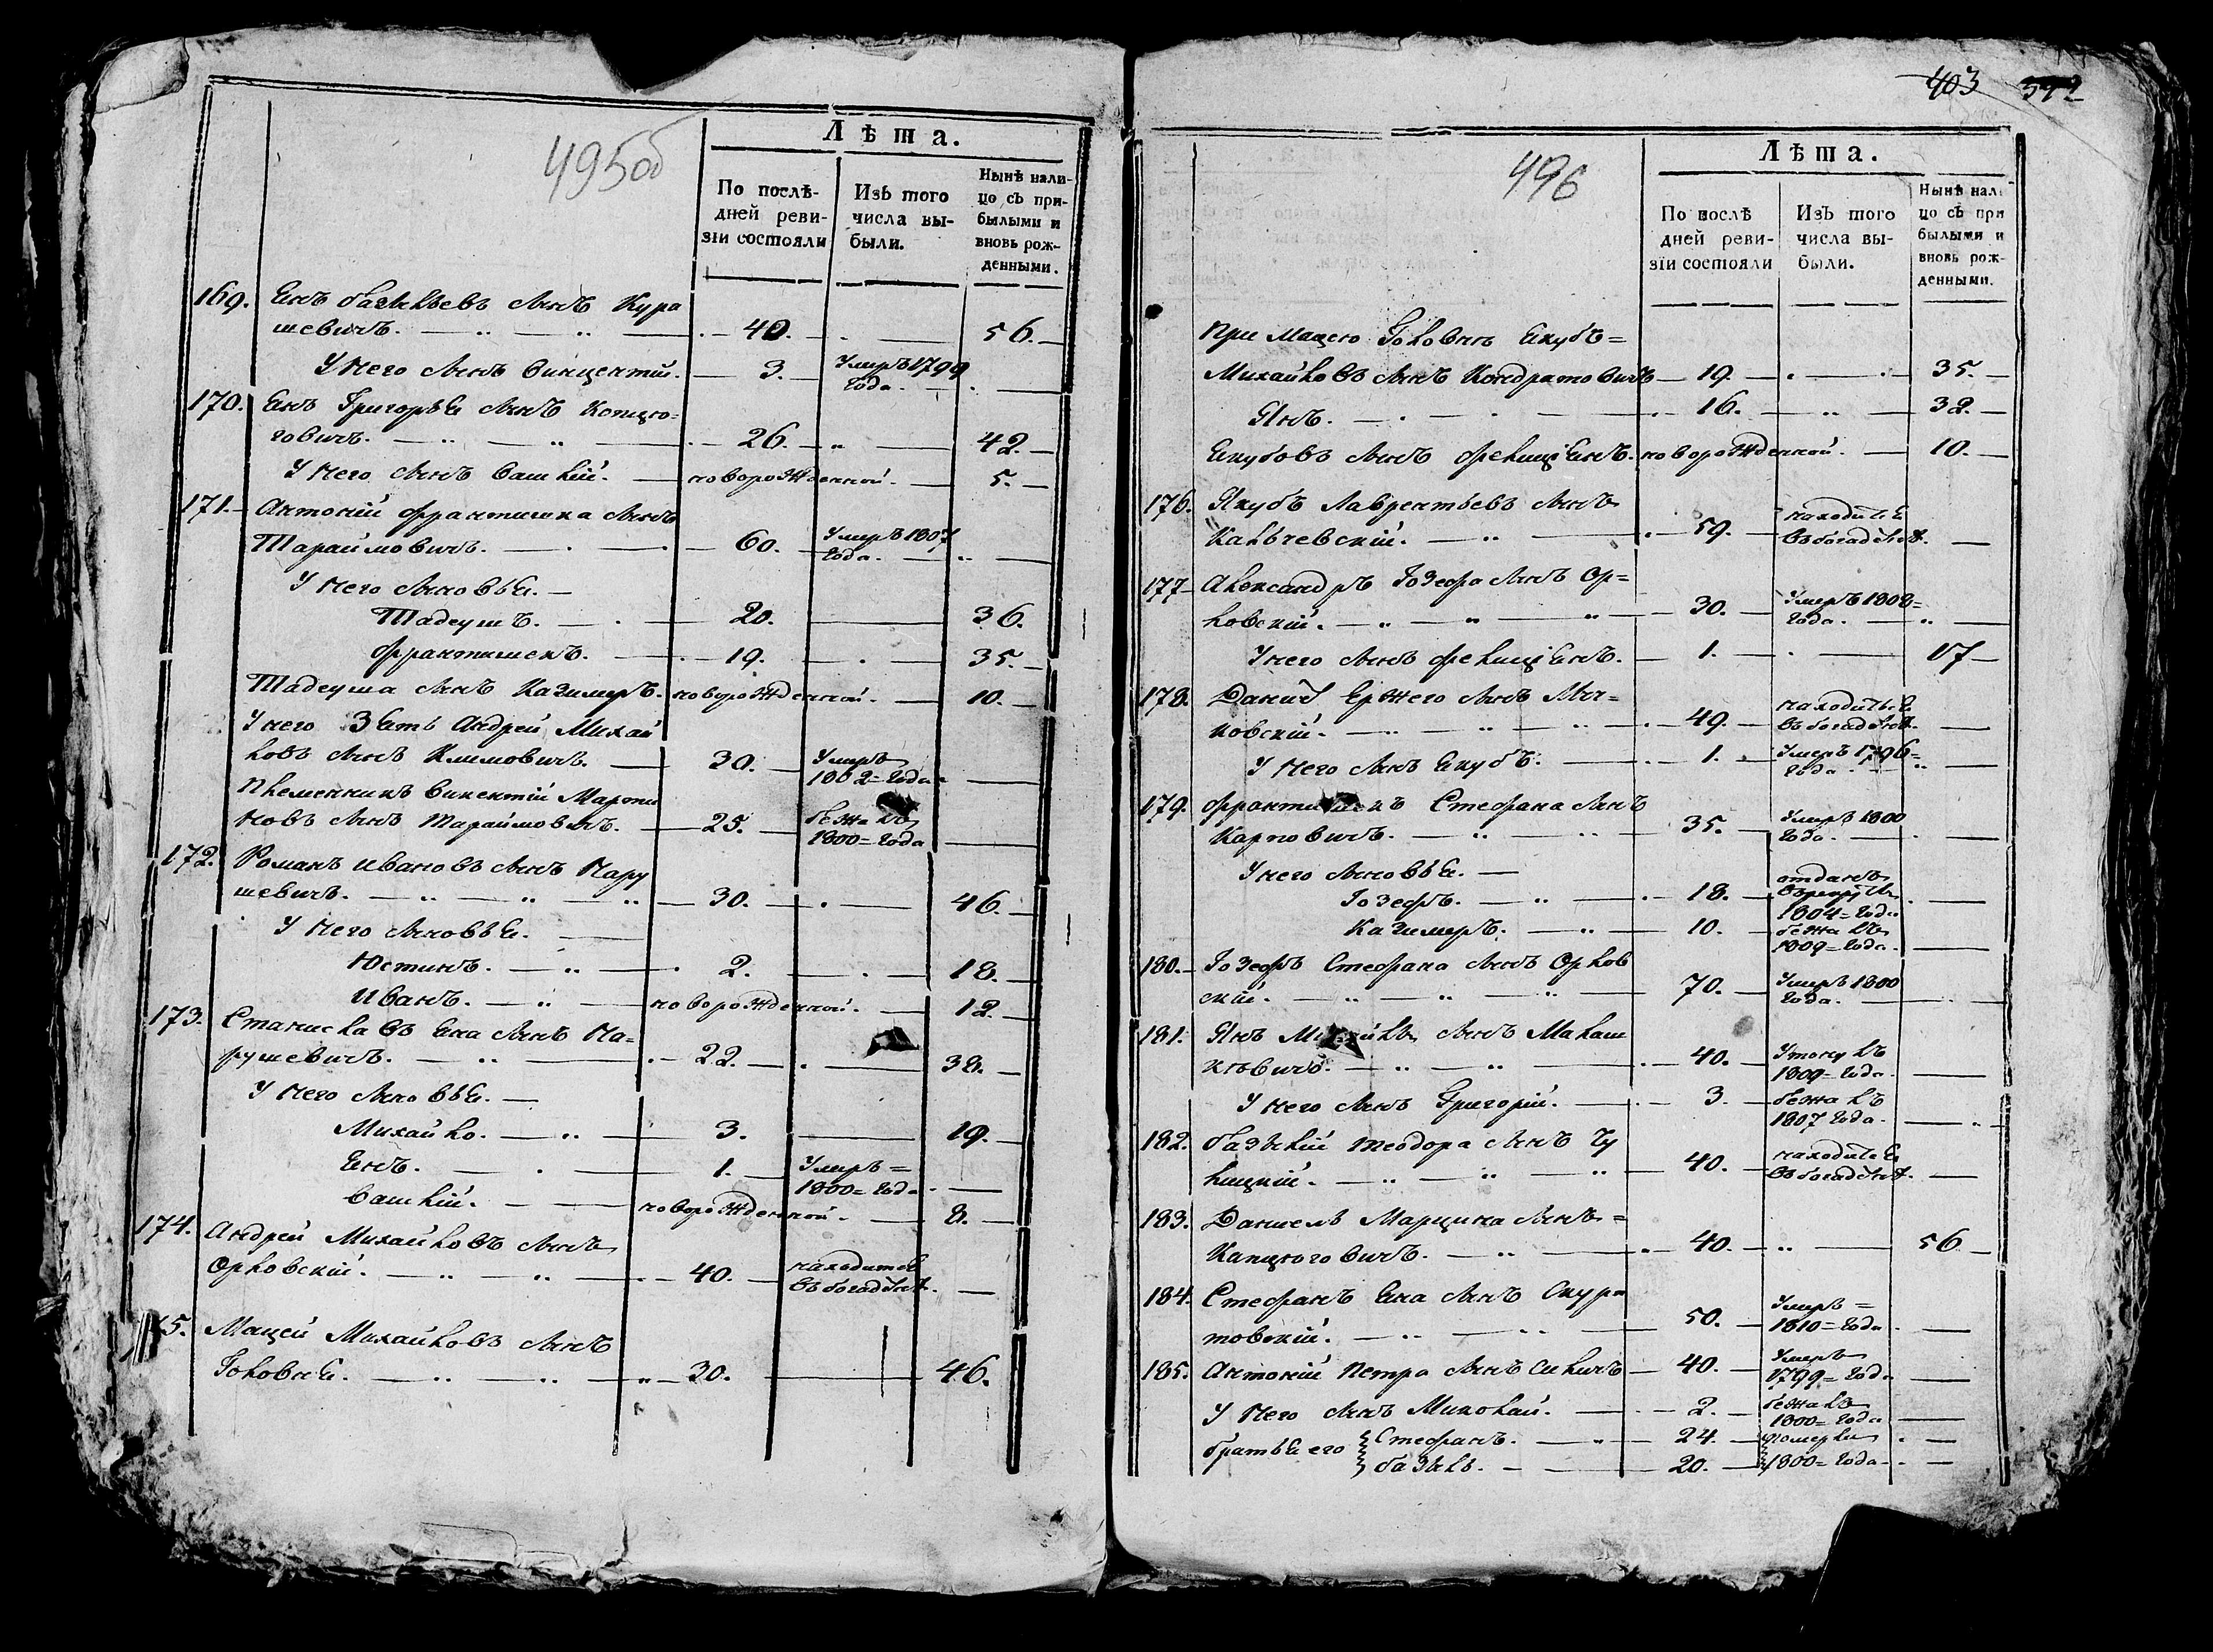 495об
Лѣта.
По послѣ-
дней реви-
зіи состояли
Изъ того
числа вы-
были.
Нынѣ нали-
цо съ при-
былыми и
вновь рож-
денными.
169. Янъ базылевъ сынъ Кура
шевичъ. 40. 56.
У него сынъ винцентій. 3. Умеръ 1799
года.
170. Янъ Григорья сынъ
26. 42.
У него сынъ васылій. новорожденной. 5.
171. Антоній франтишка сынъ
Тараймовичъ. 60. Умеръ 1807
года.
У него сыновья.
Тадеушъ. 20. 36.
франтишекъ. 19. 35.
Тадеуша сынъ Казимеръ. новорожденной. 10.
У него зять Андрей Михай
ловъ сынъ Климовичъ. 30. Умеръ
1802 года
Племенникъ викентій Марти
новъ сынъ Тараймовичъ. 25. бежалъ
1800 года
172. Романъ ивановъ сынъ Нару
шевичъ. 30. 46.
У него сыновья.
Юстинъ. 2. 18.
иванъ. новорожденной. 12.
173. Станиславъ Яна сынъ На-
рушевичъ. 22. 38.
У него сыновья.
Михайло. 3. 19.
Янъ. 1. Умеръ
1800 года
васылій. новорожденной. 8.
174. Андрей Михайловъ сынъ
Орловскій. 40. находится
въ богадѣлнѣ.
75. Мацей Михайловъ сынъ
Головня. 30. 46.
403
496
Лѣта.
По послѣ
дней реви-
зіи состояли
Изъ того
числа вы-
были.
Нынѣ нали
цо съ при
былыми и
вновь рож-
денными.
При мацею Головни Якубъ
Михайловъ сынъ Кондратовичъ 19. 35.
Янъ. 16. 32.
Якубовъ сынъ фелиціянъ. новорожденной. 10.
176. Якубъ Лаврентьевъ сынъ
Кальчевскій. 59. находится
въ богадѣлнѣ.
177. Александръ Іозефа сынъ Ор-
ловскій. 30. Умеръ 1808
года.
У него сынъ фелиціянъ. 1. 17
178. Данилъ Ержего сынъ
49. находится
въ богадѣлнѣ.
У него сынъ Якубъ. 1. Умеръ 1796
года.
179. франтишекъ Стефана сынъ
Карповичъ. 35. Умеръ 1800
года.
У него сыновья.
Іозефъ. 18. отданъ
въ рекруты
1804 года
Казимеръ. 10. бежалъ
1809 года.
180. Іозефъ Стефана сынъ Орлов
скій. 70. Умеръ 1800
года.
181. Янъ Михайлы сынъ Малаш
кѣвичъ. 40. Утонулъ
1809 года.
У него сынъ Григорій. 3. бежалъ
1807 года.
182. базылій теодора сынъ Чу
лицкій. 40. находится
въ богадѣлнѣ.
183. Даніель Марцина сынъ
Капцюговичъ. 40. 56
184. Стефанъ Яна сынъ Скура
товскій. 50. Умеръ
1810 года
185. Антоній Петра сынъ Силичъ 40. Умеръ
1799 года
У него сынъ Миколай. 2. бежалъ
1800 года
братья его Стефанъ. 24. померли
базыль. 20. 1800 года